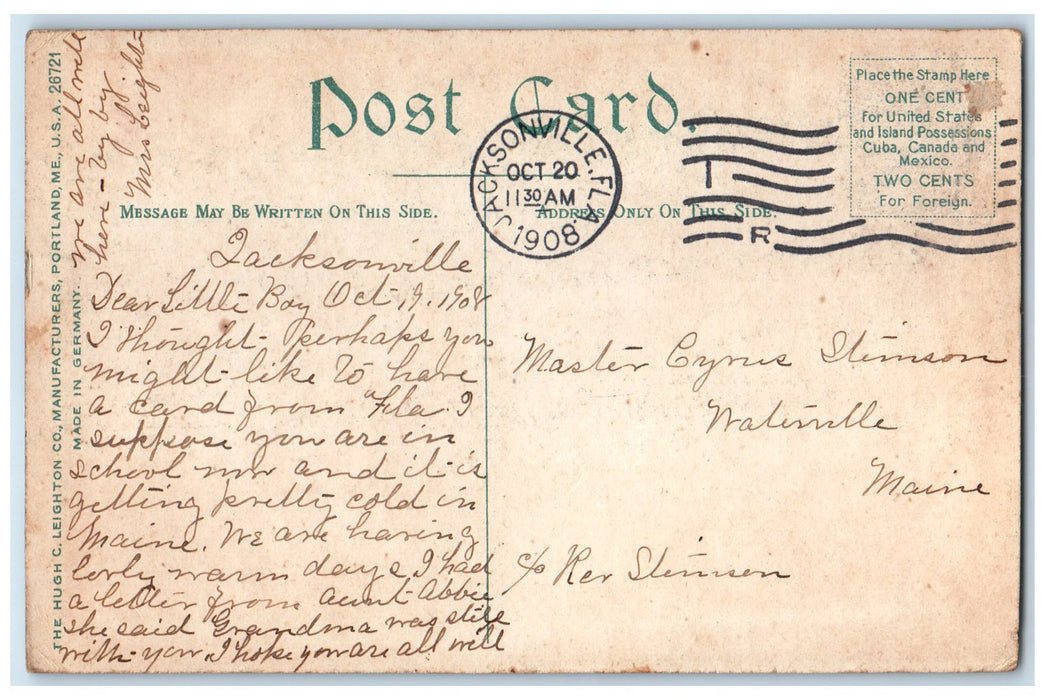 Post Card.
JACKSONVILLE, FLA
OCT 20
11 30 AM
1908
R
Place the Stamp Here
ONE CENT
For United States
and Island Possessions
Cuba, Canada and
Mexico.
TWO CENTS
For Foreign.
MESSAGE MAY BE WRITTEN ON THIS SIDE.
ADDRESS ONLY ON THIS SIDE.
THE HUGH C. LEIGHTON CO., MANUFACTURERS, PORTLAND, ME., U.S.A. 26721
MADE IN GERMANY.
Jacksonville
Dear Little Boy Oct 19. 1908
I thought perhaps you
might like to have
a card from Fla. I
suppose you are in
school now and it is
getting pretty cold in
Maine. We are having
lovly warm days I had
a letter from aunt Abbie
she said Grandma was still
with you I hope you are all well
we are all well
here - by by
Mrs
Master Cyrus Stimson
Waterville
Maine
c/o Rev Stimson